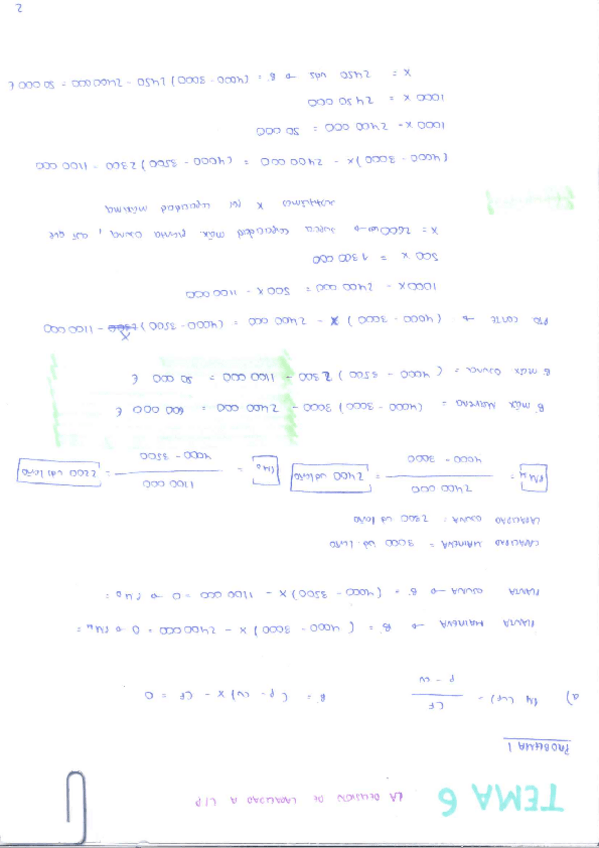 TEMA 6 LA DECISIÓN DE CAPACIDAD A L/P
PROBLEMA 1
a) PM (uf) = CF / p - cv B = (p - cv) x - CF = 0
PLANTA MAIRENA → B = (4000 - 3000) x - 2400 000 = 0 → PMM =
PLANTA OSUNA → B = (4000 - 3500) x - 1100 000 = 0 → PMO =
CAPACIDAD MAIRENA = 3000 ud. /año
CAPACIDAD OSUNA: 2300 ud /año
PMM = 2400 000 / 4000 - 3000 = 2400 ud/año PMO = 1100 000 / 4000 - 3500 = 2200 ud/año
B máx MAIRENA = (4000 - 3000) 3000 - 2400 000 = 600 000 €
B máx OSUNA = (4000 - 3500) 2300 - 1100 000 = 50 000 €
PTO CORTE → (4000 - 3000) x - 2400 000 = (4000 - 3500) x - 1100 000
1000x - 2400 000 = 500 x - 1100 000
500 x = 1300 000
x = 2600 → supera capacidad máx. planta Osuna, así que
sustituimos x por capacidad máxima
(4000 - 3000) x - 2400 000 = (4000 - 3500) 2300 - 1100 000
1000 x - 2400 000 = 50 000
1000 x = 2450 000
x = 2450 uds → B = (4000 - 3000) 2450 - 2400 000 = 50 000 €
2